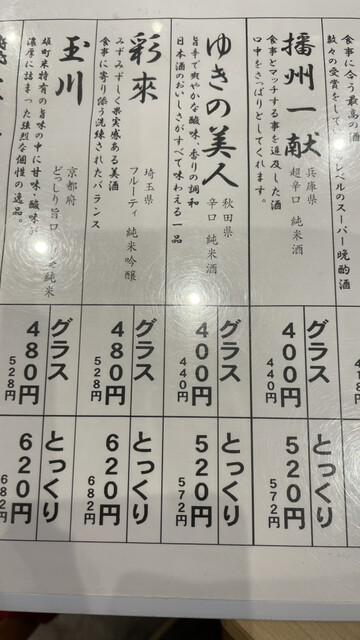 食事に合う最高の酒
数々の受賞をして、
レベルのスーパー晩酌酒
418円
グラス
とっくり
播州一献
兵庫県
超辛口 純米酒
食事とマッチする事を追及した酒
口中をさっぱりとしてくれます。
グラス
400円
440円
とっくり
520円
572円
ゆきの美人
秋田県
辛口 純米酒
旨辛で爽やかな酸味、香りの調和
日本酒のおいしさがすべて味わえる一品
グラス
400円
440円
とっくり
520円
572円
彩來
埼玉県
フルーティ 純米吟醸
みずみずしく果実感ある美酒
食事に寄り添う洗練されたバランス
グラス
480円
528円
とっくり
620円
682円
玉川
京都府
どっしり旨口
純米
雄町米特有の旨味の中に甘味・酸味が
濃厚に詰まった強烈な個性の逸品。
グラス
480円
528円
とっくり
620円
682円